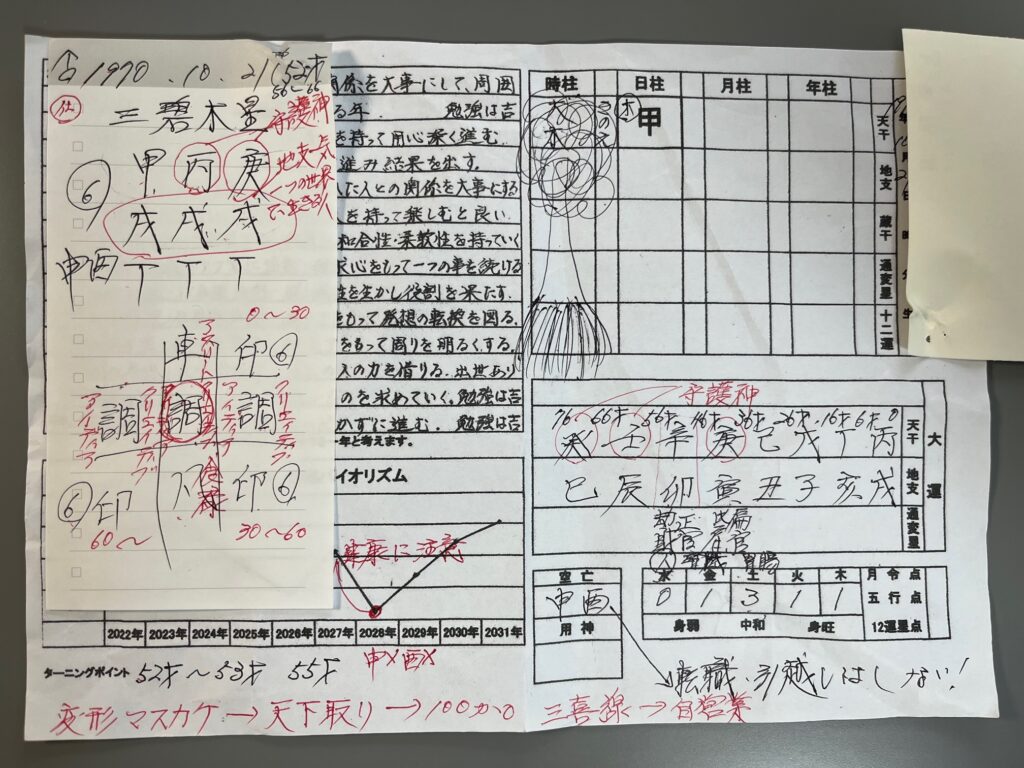 1970.10.21
三碧木星
守護神
甲 丙 庚
地支一気
一つの世界
で生きる人
⑥
戌 戌 戌
申酉 丁 丁 丁
0〜30
車 印⑥
調 調 調
アイディア
クリエイティブ
⑥印
印⑥
60〜
30〜60
関係を大事にして、周囲
る年. 勉強は吉
を持って用心深く進む.
進み結果を出す.
人との関係を大事にする
を持って楽しむと良い.
和合性・柔軟性を持っていく
心をもって一つの事を続ける
性を生かし役割を果たす.
をもって発想の転換を図る.
をもって周りを明るくする.
人の力を借りる. 出世あり
のを求めていく. 勉強は吉
かずに進む. 勉強は吉
年と考えます.
イオリズム
健康に注意
2022年 2023年 2024年 2025年 2026年 2027年 2028年 2029年 2030年 2031年
申× 酉×
ターニングポイント 52才〜53才 55才
変形マスカケ→天下取り→100か0
時柱 日柱 月柱 年柱
木 甲
天干
地支
蔵干
通変星
十二運
守護神
76才 66才 56才 46才 36才 26才 16才 6才 0
癸 壬 辛 庚 己 戊 丁 丙
天干
巳 辰 卯 寅 丑 子 亥 戌
地支
大運
通変星
空亡
申酉
用神
水 金 土 火 木 月令点
0 1 3 1 1 五行点
身弱 中和 身旺 12運星点
転職・引越しはしない!
三喜線→自営業